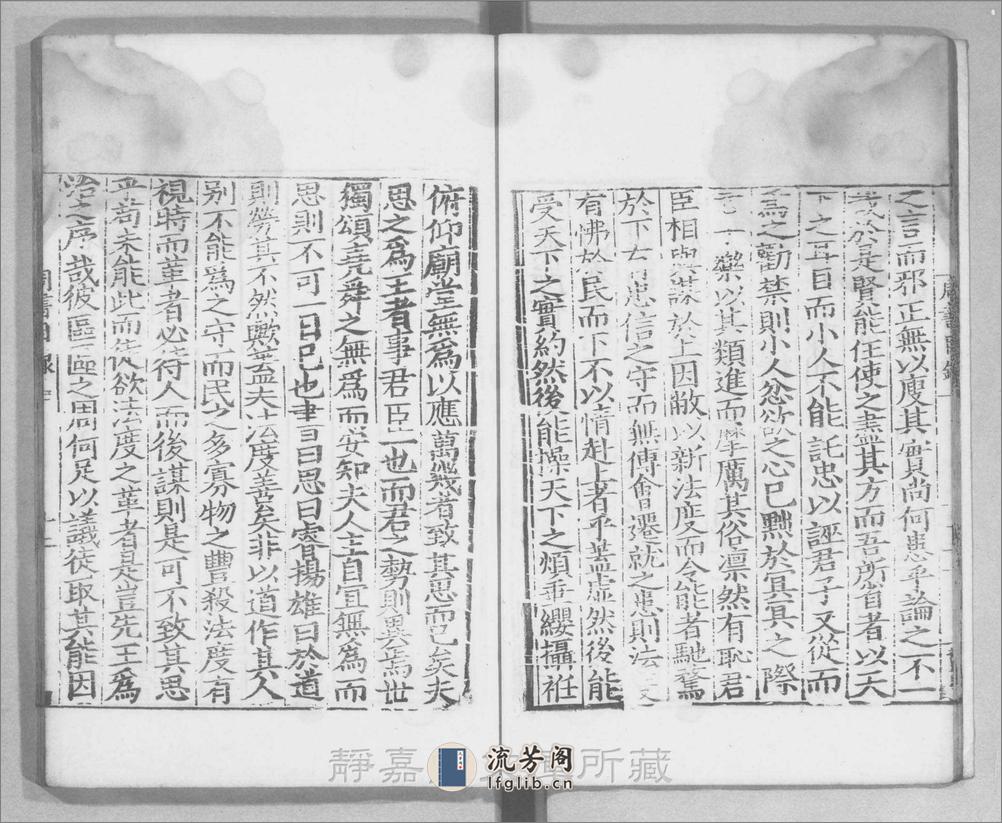 之言而邪正無以廋其實尚何患乎論之不一
於是賢能任使之盡其方而吾所省者以天
下之耳目而小人不能託忠以誣君子又從而
爲之勸禁則小人忿欲之心已黙於冥冥之際
樂以其類進而摩厲其俗凛然有恥君
臣相與謀於上因敝以新法度而令能者馳騖
於下有忠信之守而無傅會遷就之患則法
有悖於民而下不以情赴上者乎蓋虚然後能
受天下之實約然後能操天下之煩垂纓攝衽
俯仰廟堂無爲以應萬幾者致其思而已矣夫
思之爲王者事君臣一也而君之勢則異焉世
獨頌堯舜之無爲而安知夫人主自宜無爲而
思則不可一日已也書曰思曰睿揚雄曰於道
則勞其不然歟蓋夫法度善矣非以道作其人
别不能爲之守而民之多寡物之豐殺法度有
視時而革者必待人而後謀則是可不致其思
乎苟未能此而徒欲法度之革者是豈先王爲
治之序哉彼區區之周何足以議徒取其能因
周書目録
靜嘉堂文庫所藏
流芳阁
lfglib.cn